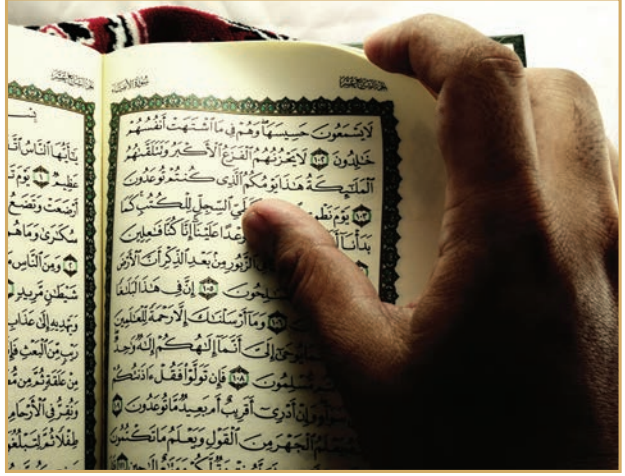 الجزء السابع عشر سورة الأنبياء
لَا يَسْمَعُونَ حَسِيسَهَا وَهُمْ فِي مَا اشْتَهَتْ أَنفُسُهُمْ
خَٰلِدُونَ ١٠٢ لَا يَحْزُنُهُمُ الْفَزَعُ الْأَكْبَرُ وَتَتَلَقَّىٰهُمُ
الْمَلَٰٓئِكَةُ هَٰذَا يَوْمُكُمُ الَّذِي كُنتُمْ تُوعَدُونَ
١٠٣ يَوْمَ نَطْوِي السِّجِلِّ لِلْكُتُبِ كَمَا
بَدَأْنَا وَعْدًا عَلَيْنَا إِنَّا كُنَّا فَٰعِلِينَ
الزَّبُورِ مِن بَعْدِ الذِّكْرِ أَنَّ الْأَرْضَ
١٠٥ إِنَّ فِي هَٰذَا لَبَلَٰغًا
وَمَا أَرْسَلْنَٰكَ إِلَّا رَحْمَةً لِّلْعَٰلَمِينَ
يُوحَىٰ إِلَيَّ أَنَّمَا إِلَٰهُكُمْ إِلَٰهٌ وَٰحِدٌ
مُّسْلِمُونَ ١٠٨ فَإِن تَوَلَّوْا فَقُلْ ءَاذَنتُكُمْ
سَوَاءٍ وَإِنْ أَدْرِي أَقَرِيبٌ أَم بَعِيدٌ مَّا تُوعَدُونَ
يَعْلَمُ الْجَهْرَ مِنَ الْقَوْلِ وَيَعْلَمُ مَا تَكْتُمُونَ
الجزء السابع عشر
يَٰٓأَيُّهَا النَّاسُ
عَظِيمٌ ١ يَوْمَ
أَرْضَعَتْ وَتَضَعُ
سُكَٰرَىٰ وَمَا هُم
٢ وَمِنَ النَّاسِ
شَيْطَٰنٍ مَّرِيدٍ
وَيَهْدِيهِ إِلَىٰ عَذَابِ
رَيْبٍ مِّنَ الْبَعْثِ
مِنْ عَلَقَةٍ ثُمَّ مِن
وَنُقِرُّ فِي الْأَرْحَامِ
طِفْلًا ثُمَّ لِتَبْلُغُوا